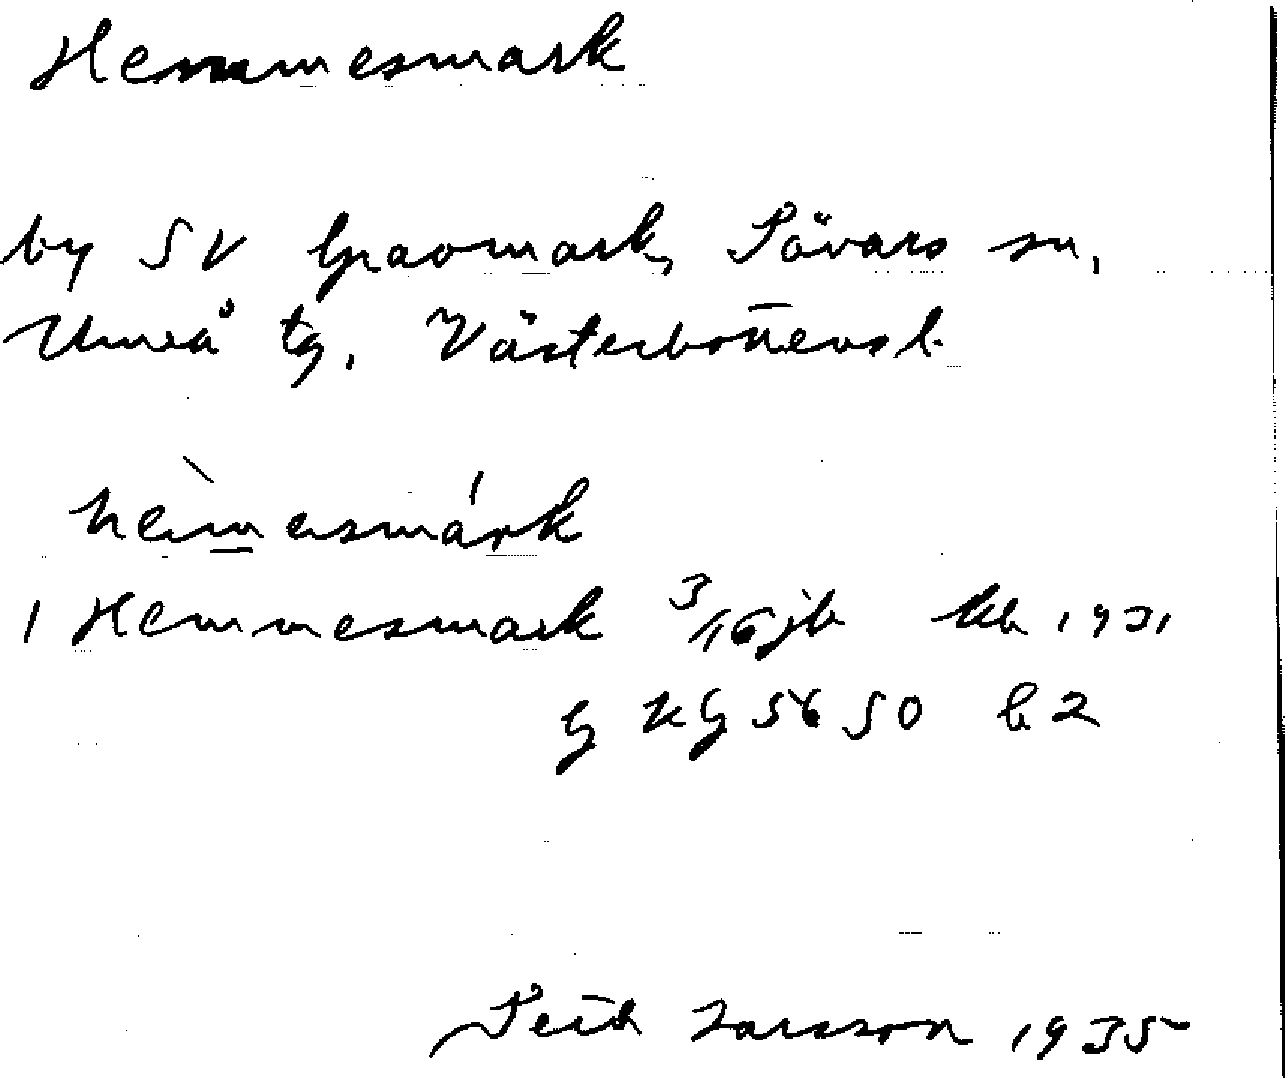 Hemmesmark
by SV Gravmark, Sävars sn,
Umeå tg. Västerbottens l.
hèm̲esmárk
1 Hemmesmark 3/16 jb kb 1931
G KG 56 50 b 2
Seth Larsson 1935